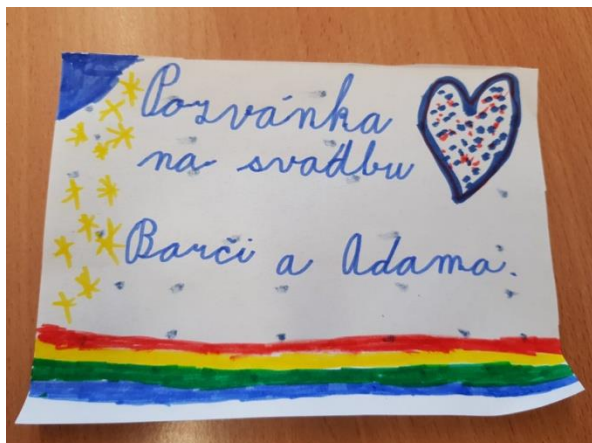 Pozvánka
na svadbu
Barči a Adama.